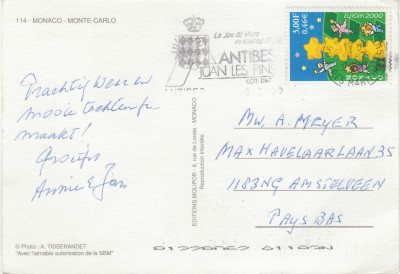 114 - MONACO - MONTE-CARLO
La joie de vivre
ANTIBES
JUAN LES PINS
3,00F
0,46€
EUROPA 2000
MONACO
Prachtig weer en
mooie tochten
maakt!
Groetjes
Annie & Jan
EDITIONS MOLIPOR - 8, rue de Lorète - MONACO
Reproduction Interdite
MW. A. MEYER
MAX HAVELAARLAAN 35
1183NG AMSTELVEEN
PAYS BAS
© Photo : A. TISSERANDET
"Avec l'aimable autorisation de la SBM"